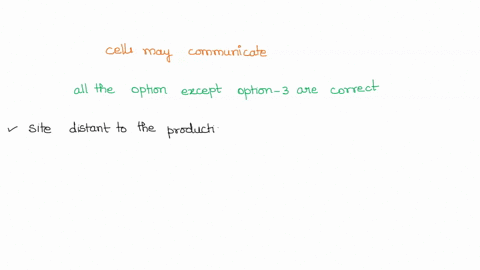 cells may communicate
all the option except option-3 are correct
✓ site distant to the product